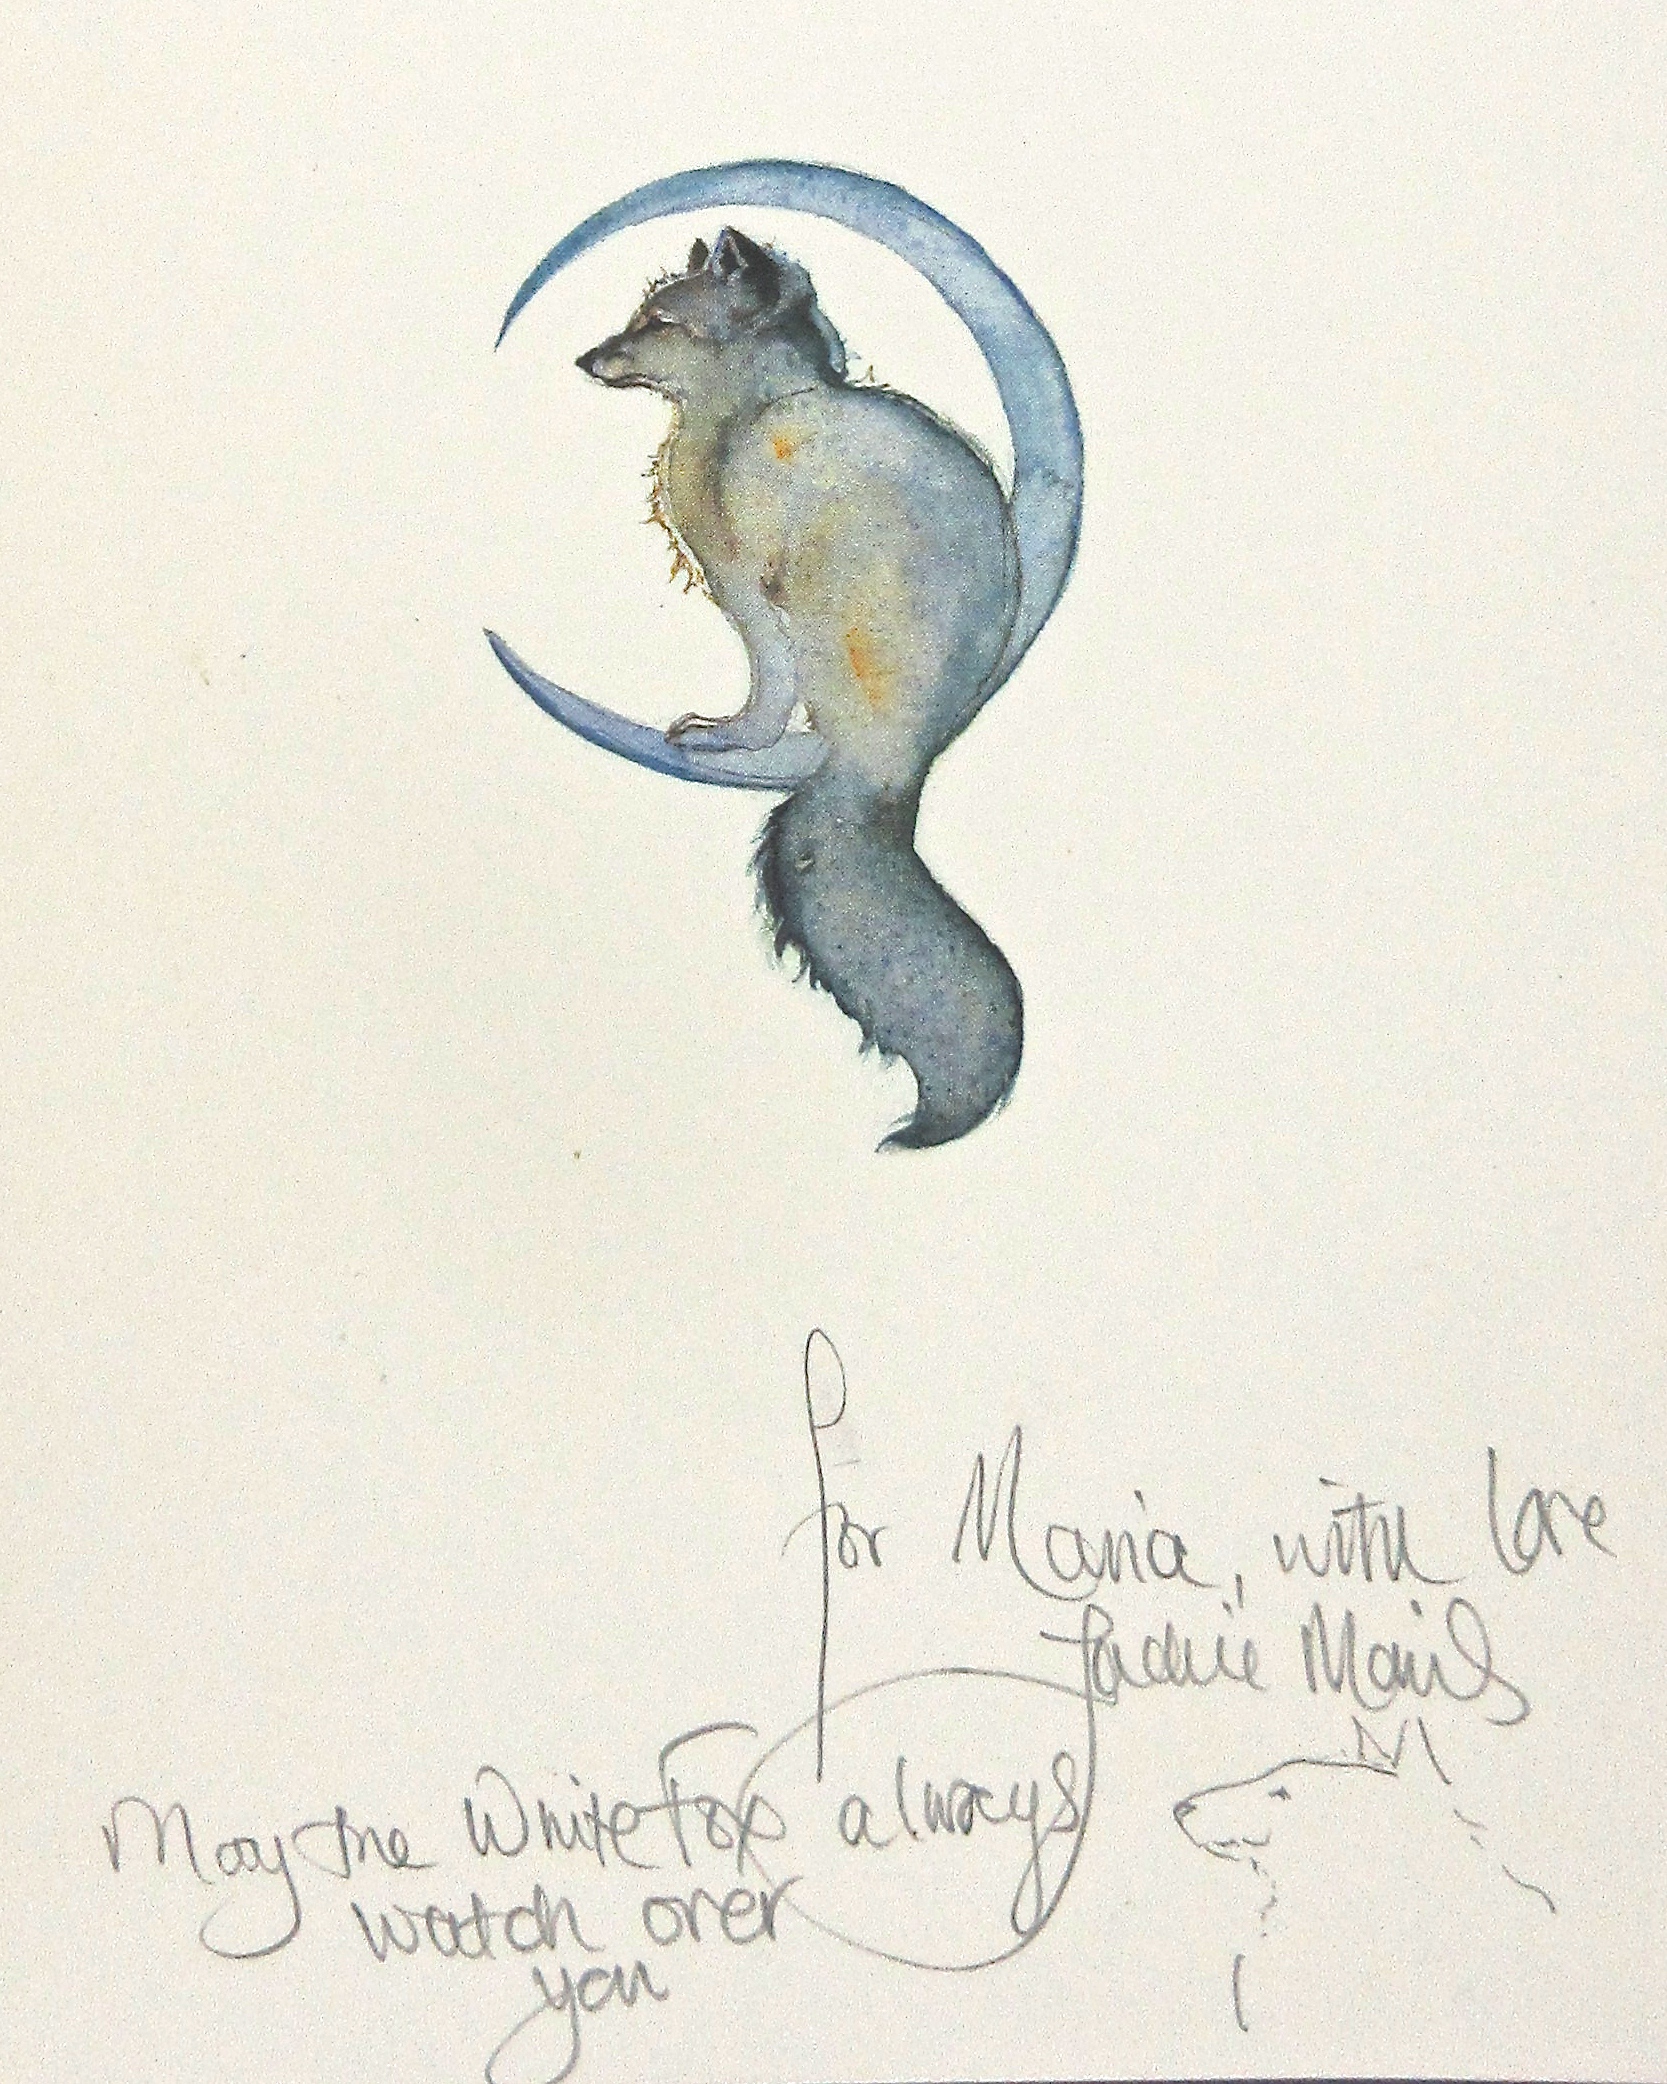 For Maria, with love
Jackie Morris
May the White Fox always
watch over
you